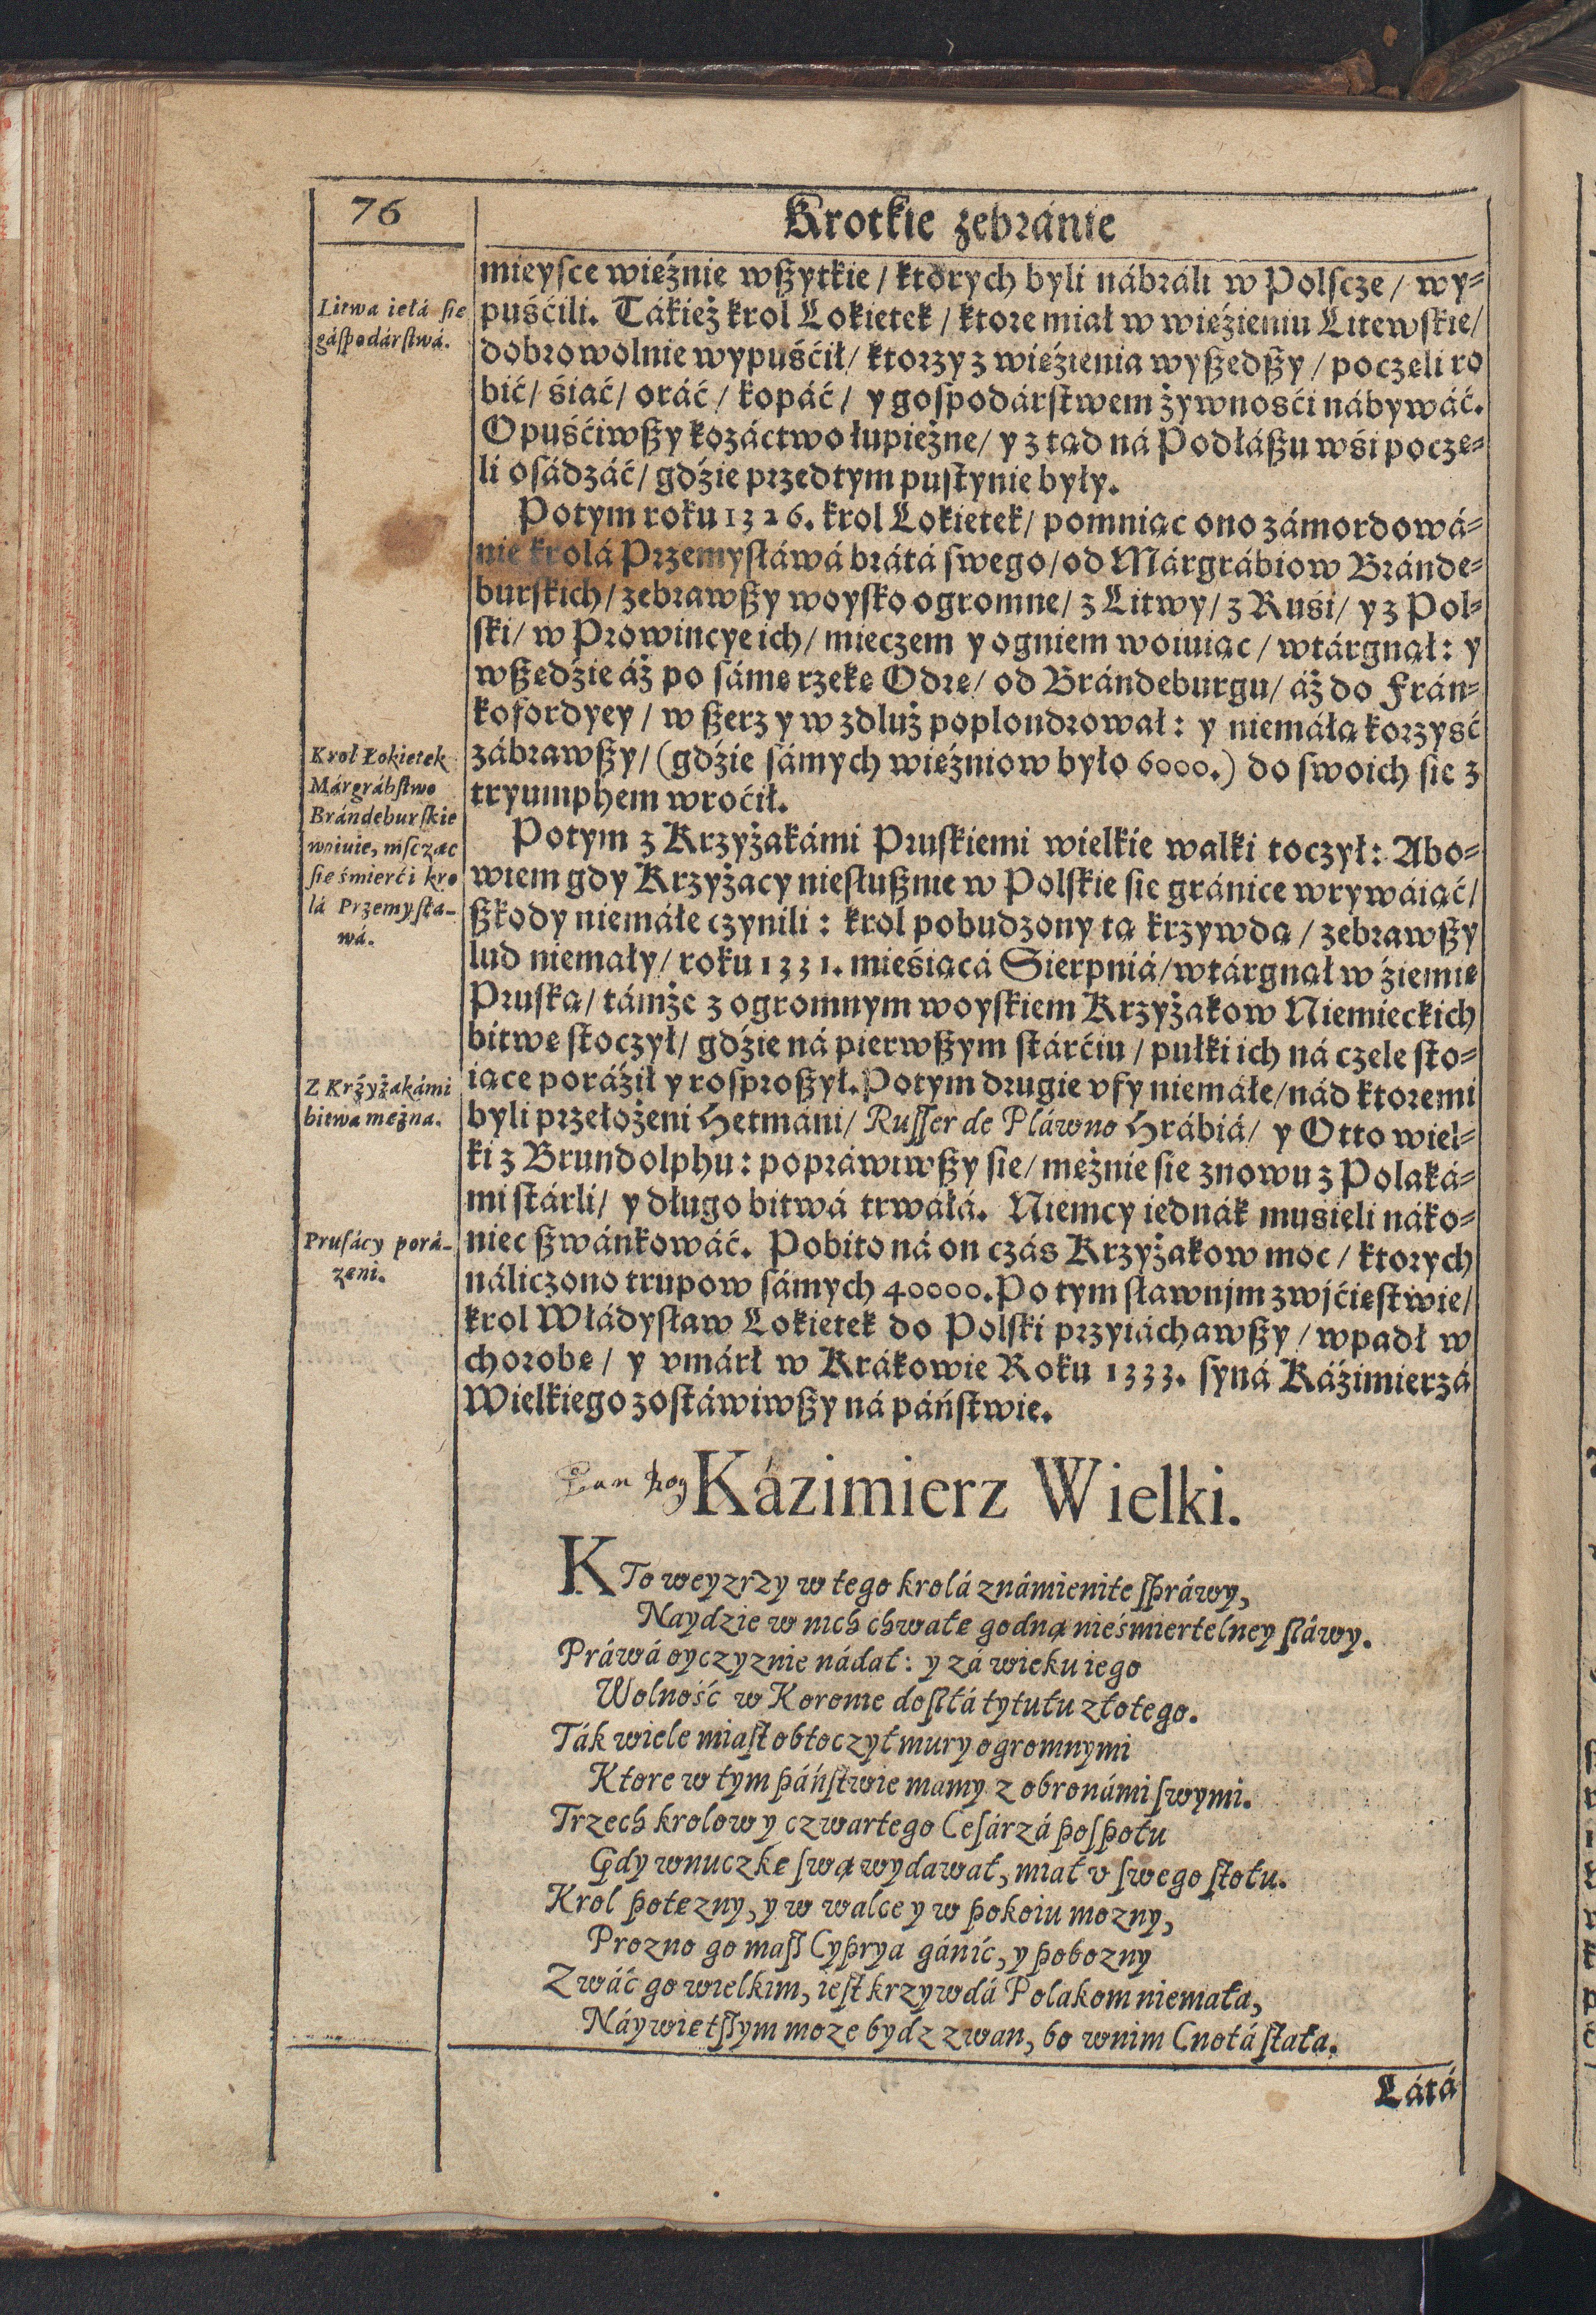 76
Krotkie zebránie
mieysce wieźnie wßytkie / których byli nábráli w Polscze / wy=
puśćili. Tákież krol Lokietek / ktore miał w wieźieniu Litewskie /
dobrowolnie wypuśćił / ktorzy z wieźienia wyßedßy / poczeli ro
bić / śiać / oráć / kopáć / y gospodárstwem żywnośći nábywáć.
Opuśćiwßy kozáctwo łupieżne / y z tąd ná Podłáßu wśi pocze=
li osádzáć / gdźie przedtym pustynie były.
Litwa ięłá się
gáspodárstwá.
Potym roku 1326. krol Lokietek / pomniąc ono zámordowá=
nie krolá Przemysłáwá brátá swego / od Márgrábiow Bránde=
burskich / zebrawßy woysko ogromne / z Litwy / z Ruśi / y z Pol=
ski / w Prowincye ich / mieczem y ogniem woiuiąc / wtárgnął: y
wßędźie áż po sámę rzekę Odrę / od Brándeburgu / áż do Frán=
kofordyey / w ßerz y w zdłuż poplondrował: y niemáłą korzysć
zábrawßy / (gdźie sámych wieźniow było 6000.) do swoich sie z
tryumphem wroćił.
Krol Łokietek
Márgrábstwo
Brándeburskie
woiuie, mscząc
sie śmierći kro
lá Przemysła-
wá.
Potym z Krzyżakámi Pruskiemi wielkie walki toczył: Abo=
wiem gdy Krzyżacy niesłußnie w Polskie sie gránice wrywáiąć /
ßkody niemáłe czynili: krol pobudzony tą krzywdą / zebrawßy
lud niemáły / roku 1331. mieśiącá Sierpniá / wtárgnął w źiemię
Pruską / támże z ogromnym woyskiem Krzyżakow Niemieckich
bitwę stoczył / gdźie ná pierwßym stárćiu / pułki ich ná czele sto=
iące poráźił y rosproßył. Potym drugie vfy niemáłe / nád ktoremi
byli przełożeni Hetmáni / Russer de Pláwno Hrábiá / y Otto wiel=
ki z Brundolphu: popráwiwßy sie / mężnie sie znowu z Polaká=
mi stárli / y długo bitwá trwáłá. Niemcy iednák musieli náko=
niec ßwánkowáć. Pobito ná on czás Krzyżakow moc / ktorych
náliczono trupow sámych 40000. Po tym sławnjm zwjćięstwie /
krol Włádysław Lokietek do Polski przyiáchawßy / wpadł w
chorobę / y vmárł w Krákowie Roku 1333. syná Káźimierzá
Wielkiego zostáwiwßy ná páństwie.
Z Krźyżakámi
bitwa mężna.
Prusácy porá-
żeni.
Kázimierz Wielki.
KTo weyzrzy w tego krolá známienite spráwy,
Naydzie w nich chwałę godną nieśmiertelney słáwy.
Práwá oyczyznie nádał: y zá wieku iego
Wolność w Koronie dosłá tytułu złotego.
Ták wiele miast obtoczył mury ogromnymi
Ktore w tym páństwie mamy z obronámi swymi.
Trzech krolow y czwartego Cesárzá pospołu
Gdy wnuczkę swą wydawał, miał v swego stołu.
Krol potezny, y w walce y w pokoiu mozny,
Prozno go mass Cyprya gánić, y pobozny
Zwáć go wielkim, iest krzywdá Polakom niemała,
Náywietssym moze bydz zwan, bo wnim Cnotá stała.
Látá